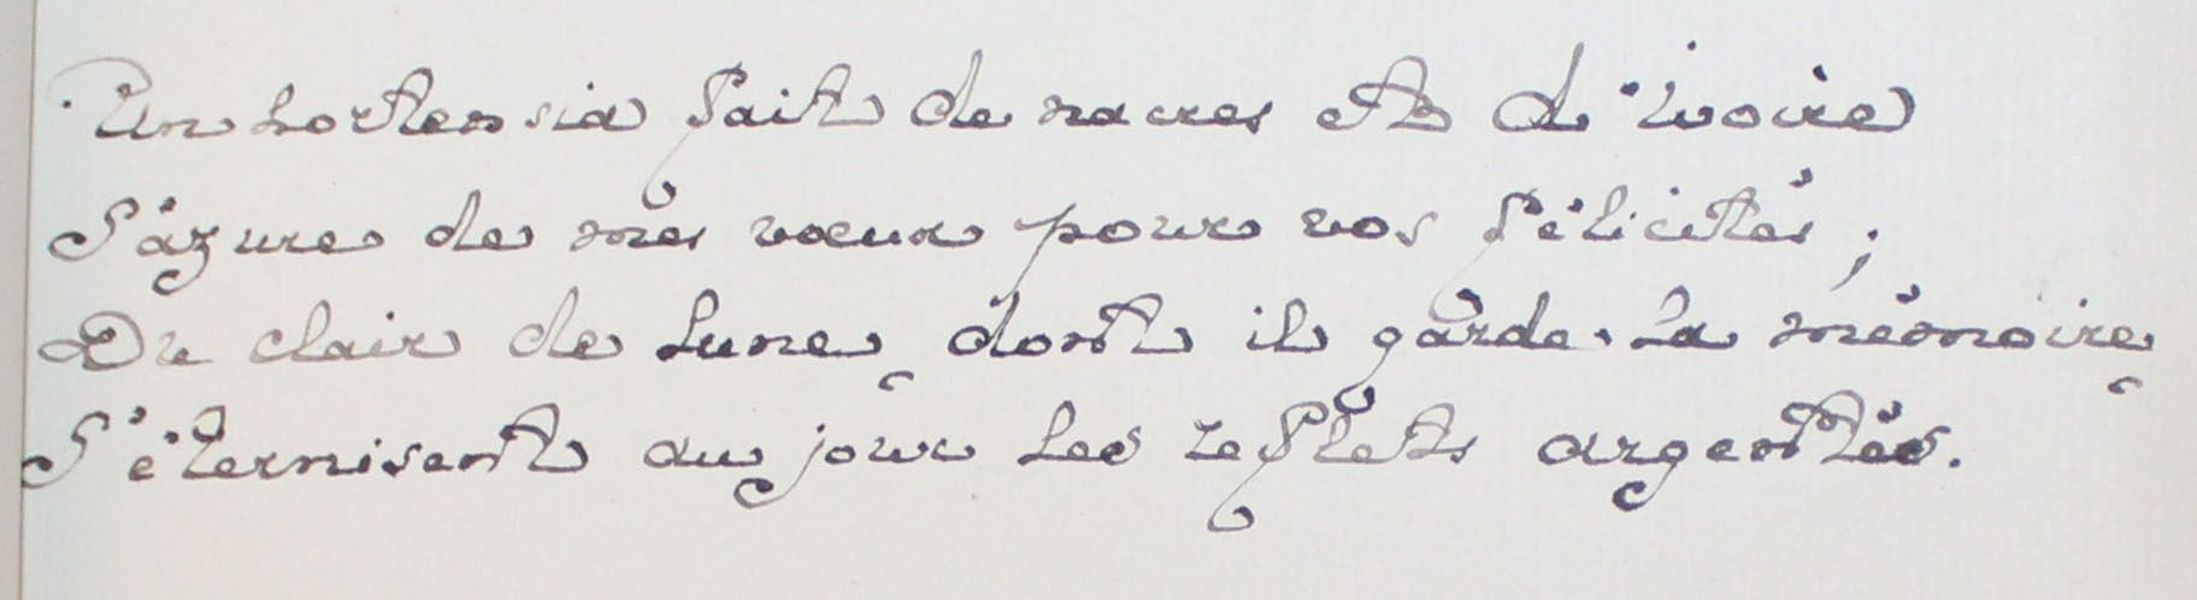 Un hortensia fait de nacres et d'ivoire
S'azure de mes vœux pour vos félicités ;
Du clair de lune, dont il garde la mémoire,
S'éternisent au jour les reflets argentés.